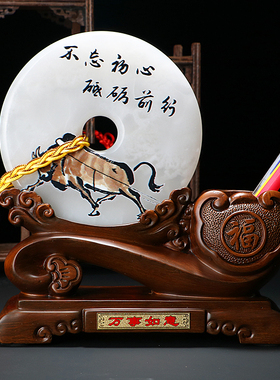 不忘初心
砥砺前行
福
万事如意